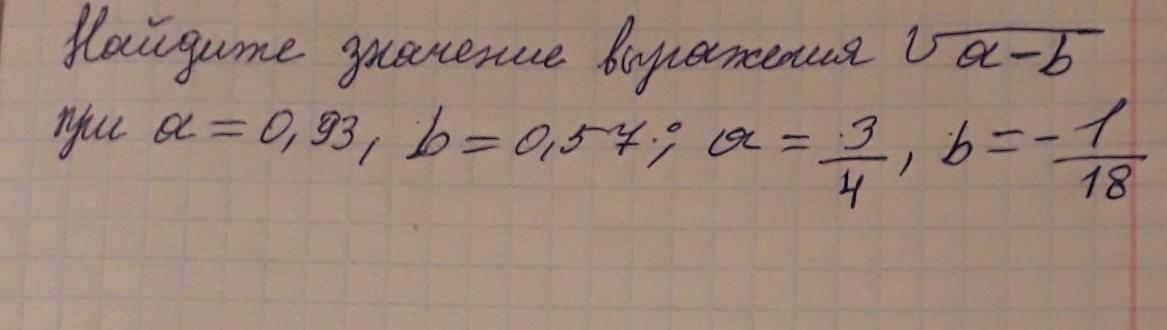 Найдите значение выражения √a-b
при a=0,93, b=0,57; a=3/4, b=-1/18